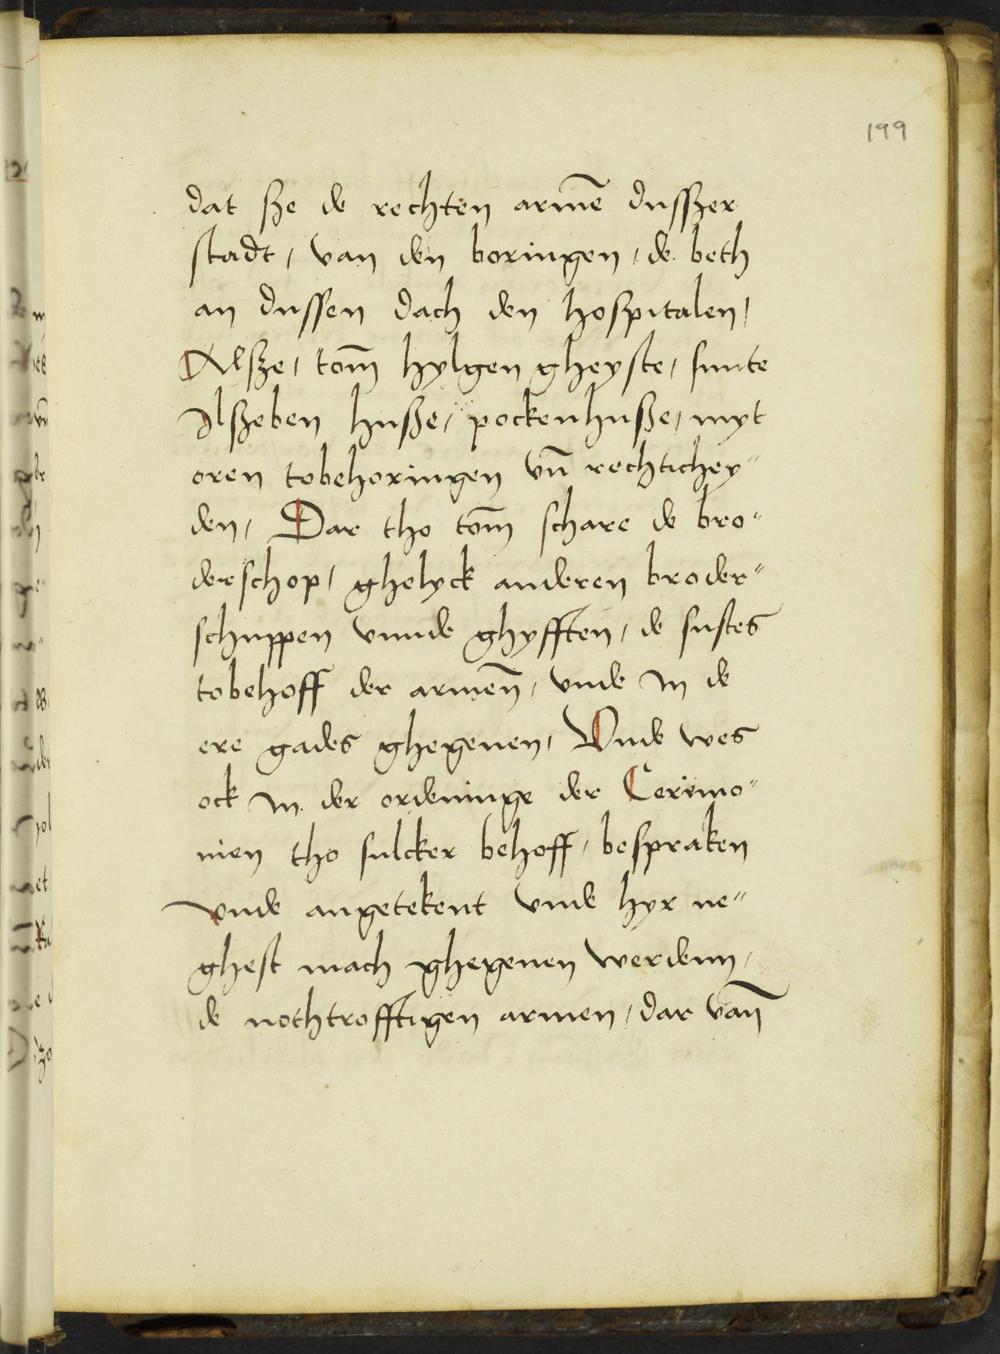 199
dat sze de rechten armē dusszer
stadt / van den boringen / de beth
an dussen dach den hospitalen /
Alsze / tom̄ hylgen gheyste / sunte
Ilszeben husze / pockenhusze / myt
oren tobehoringen vn̄ rechtichey"
den / Dar tho tom̄ schare de bro"
derschop / ghelyck anderen broder"
schuppen vnnde ghyfften / de sustes
tobehoff der armen̄ / vnde in de
ere gades ghegeuen / Vnde wes
ock in der ordeninge der Cerimo"
nien tho sulcker behoff / bespraken
vnde angetekent vnde hyr ne"
ghest mach ghegeuen werdenn /
de nothtrofftigen armen / dar van̄